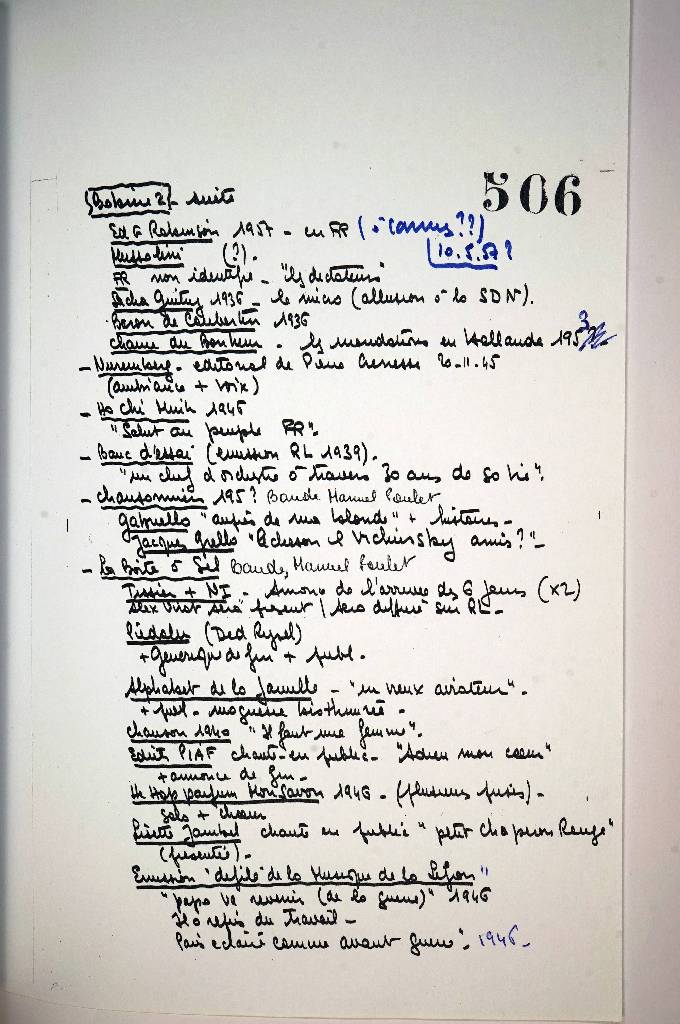 506
Bobine 2 - suite
Ed G Robinson 1957 - en FR (à Cannes??)
10.5.57?
Mussolini (?).
FR non identifié - "les dictateurs"
Sacha Guitry 1936 - le micro (allusion à la SDN).
Baron de Coubertin 1936
Chaine du Bonheur - les inondations en Hollande 1953
- Nuremberg - editorial de Pierre 20-11-45
(ambiance + voix)
- Ho Chi Minh 1946
"Salut au peuple FR".
- Banc d'essai (emission RL 1939).
"un chef d'orchestre à travers 30 ans de sa vie".
- Chansonniers 195? Bande Manuel Poulet
Gabriello "auprès de ma blonde" + histoires -
Jacques Grello "Acheson et Vichinsky amis?" -
- La Boite à Sel Bande, Manuel Poulet
Tissier + NI - Annonce de l'arrivée des 6 jours (x2)
Alex Virot sera présent / sera diffusé sur RL -
Piédalu (Ded Rysel)
+ Generique de fin + publ.
Alphabet de la famille - "un vieux aviateur".
+ publ -
Chanson 1940 "Il faut une femme".
Edith PIAF chante en public - "Adieu mon coeur"
+ annonce de fin -
parfum Mon Savon 1946 - (plusieurs fois) -
solo + choeur
Lisette Jambel chante en public "petit Chaperon Rouge"
(présenté) -
Emission "defilé de la Musique de la Légion"
"papa va revenir (de la guerre)" 1946
Il a repris du Travail -
Paris eclairé comme avant guerre". 1946 -